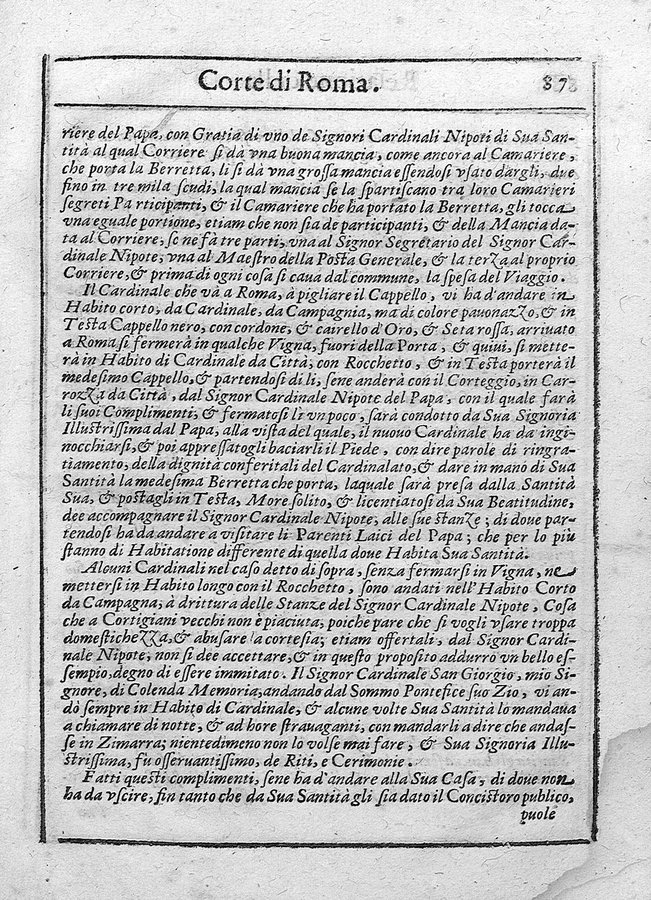 Corte di Roma. 87
riere del Papa, con Gratia di vno de Signori Cardinali Nipoti di Sua San-
tità al qual Corriere si dà vna buona mancia, come ancora al Camariere,
che porta la Berretta, li si dà vna grossa mancia essendosi vsato dargli, due
fino in tre mila scudi, la qual mancia se la spartiscano tra loro Camarieri
segreti Participanti, & il Camariere che ha portato la Berretta, gli tocca
vna eguale portione, etiam che non sia de participanti, & della Mancia da-
ta al Corriere, se ne fà tre parti, vna al Signor Segretario del Signor Car-
dinale Nipote, vna al Maestro della Posta Generale, & la terza al proprio
Corriere, & prima di ogni cosa si caua dal commune, la spesa del Viaggio.
Il Cardinale che và a Roma, à pigliare il Cappello, vi ha d'andare in
Habito corto, da Cardinale, da Campagnia, ma di colore pauonazzo, & in
Testa Cappello nero, con cordone, & cairello d'Oro, & Seta rossa, arriuato
a Roma si fermerà in qualche Vigna, fuori della Porta, & quiui, si mette-
rà in Habito di Cardinale da Città, con Rocchetto, & in Testa porterà il
medesimo Cappello, & partendosi di li, sene anderà con il Corteggio, in Car-
rozza da Città, dal Signor Cardinale Nipote del Papa, con il quale farà
li suoi Complimenti, & fermatosi lì vn poco, sarà condotto da Sua Signoria
Illustrissima dal Papa, alla vista del quale, il nuouo Cardinale ha da ingi-
nocchiarsi, & poi appressatogli baciarli il Piede, con dire parole di ringra-
tiamento, della dignità conferitali del Cardinalato, & dare in mano di Sua
Santità la medesima Berretta che porta, laquale sarà presa dalla Santità
Sua, & postagli in Testa, More solito, & licentiatosi da Sua Beatitudine,
dee accompagnare il Signor Cardinale Nipote, alle sue stanze; di doue par-
tendosi ha da andare a visitare li Parenti Laici del Papa; che per lo più
stanno di Habitatione differente di quella doue Habita Sua Santità.
Alcuni Cardinali nel caso detto di sopra, senza fermarsi in Vigna, ne
mettersi in Habito longo con il Rocchetto, sono andati nell'Habito Corto
da Campagna, à drittura delle Stanze del Signor Cardinale Nipote, Cosa
che a Cortigiani vecchi non è piaciuta, poiche pare che si vogli vsare troppa
domestichezza, & abusare la cortesia; etiam offertali, dal Signor Cardi-
nale Nipote, non si dee accettare, & in questo proposito addurrò vn bello es-
sempio, degno di essere immitato. Il Signor Cardinale San Giorgio, mio Si-
gnore, di Colenda Memoria, andando dal Sommo Pontefice suo Zio, vi an-
dò sempre in Habito di Cardinale, & alcune volte Sua Santità lo mandaua
a chiamare di notte, & ad hore strauaganti, con mandarli a dire che andas-
se in Zimarra; nientedimeno non lo volse mai fare, & Sua Signoria Illu-
strissima, fù osseruantissimo, de Riti, e Cerimonie.
Fatti questi complimenti, sene ha d'andare alla Sua Casa, di doue non
ha da vscire, fin tanto che da Sua Santità gli sia dato il Concistoro publico,
puole